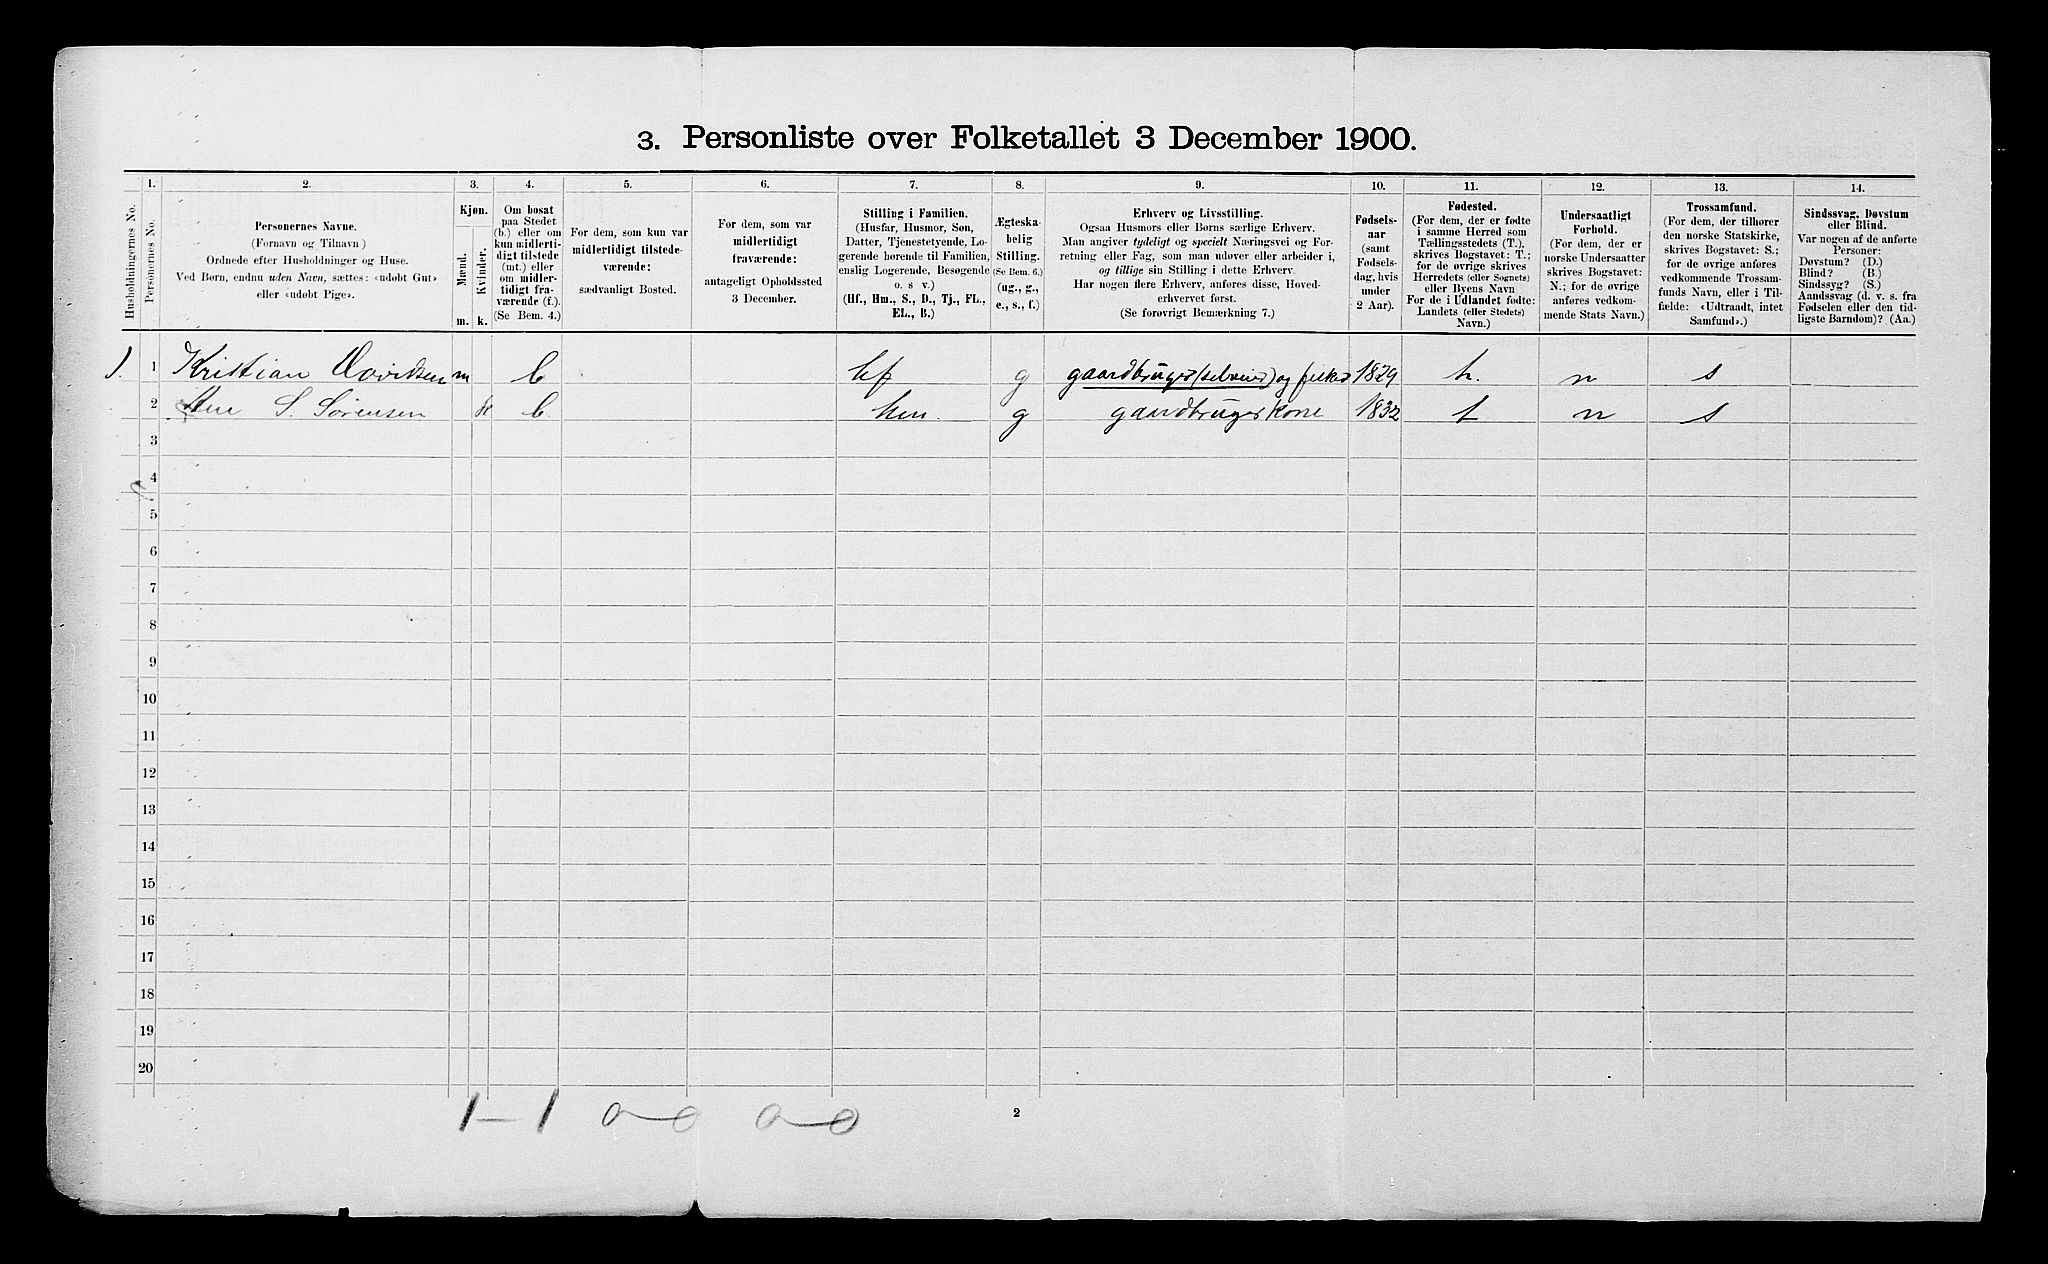 3. Personliste over Folketallet 3 December 1900.
Husholdningernes No.
1.
Personernes No.
2.
Personernes Navne.
(Fornavn og Tilnavn)
Ordnede efter Husholdninger og Huse.
Ved Børn, endnu uden Navn, sættes: «udøbt Gut»
eller «udøbt Pige».
3.
Kjøn.
Mænd.
Kvinder.
m. k.
4.
Om bosat
paa Stedet
(b.) eller om
kun midlerti-
digt tilstede
(mt.) eller
om midler-
tidigt fra-
værende (f.).
(Se Bem. 4.)
5.
For dem, som kun var
midlertidigt tilstede-
værende:
sædvanligt Bosted.
6.
For dem, som var
midlertidigt
fraværende:
antageligt Opholdssted
3 December.
7.
Stilling i Familien.
(Husfar, Husmor, Søn,
Datter, Tjenestetyende, Lo-
gerende hørende til Familien,
enslig Logerende, Besøgende
o. s v.)
(Hf., Hm., S., D., Tj., FL.,
EL., B.)
8.
Ægteska-
belig
Stilling.
(Se Bem. 6.)
(ug., g.,
e., s., f.)
9.
Erhverv og Livsstilling.
Ogsaa Husmors eller Børns særlige Erhverv.
Man angiver tydeligt og specielt Næringsvei og For-
retning eller Fag, som man udøver eller arbeider i,
og tillige sin Stilling i dette Erhverv.
Har nogen flere Erhverv, anføres disse, Hoved-
erhvervet først.
(Se forøvrigt Bemærkning 7.)
10.
Fødsels-
aar
(samt
Fødsels-
dag, hvis
under
2 Aar).
11.
Fødested.
(For dem, der er fødte
i samme Herred som
Tællingsstedets (T.),
skrives Bogstavet: T.;
for de øvrige skrives
Herredets (eller Sognets)
eller Byens Navn
For de i Udlandet fødte:
Landets (eller Stedets)
Navn.)
12.
Undersaatligt
Forhold.
(For dem, der er
norske Undersaatter
skrives Bogstavet:
N.; for de øvrige
anføres vedkom-
mende Stats Navn.)
13.
Trossamfund.
(For dem, der tilhører
den norske Statskirke,
skrives Bogstavet: S.;
for de øvrige anføres
vedkommende Trossam-
funds Navn, eller i Til-
fælde: «Udtraadt, intet
Samfund».)
14.
Sindssvag, Døvstum
eller Blind.
Var nogen af de anførte
Personer:
Døvstum? (D.)
Blind? (B.)
Sindssyg? (S.)
Aandssvag (d. v. s. fra
Fødselen eller den tid-
ligste Barndom)? (Aa.)
1. 1 Kristian m b hf g gaardbruger (selveier) og 1829 n s
2 S. Sørensen k b hm. g gaardbruger kone 1832 t n s
3
4
5
6
7
8
9
10
11
12
13
14
15
16
17
18
19
20
1 – 1 0 – 0 0 – 0
2